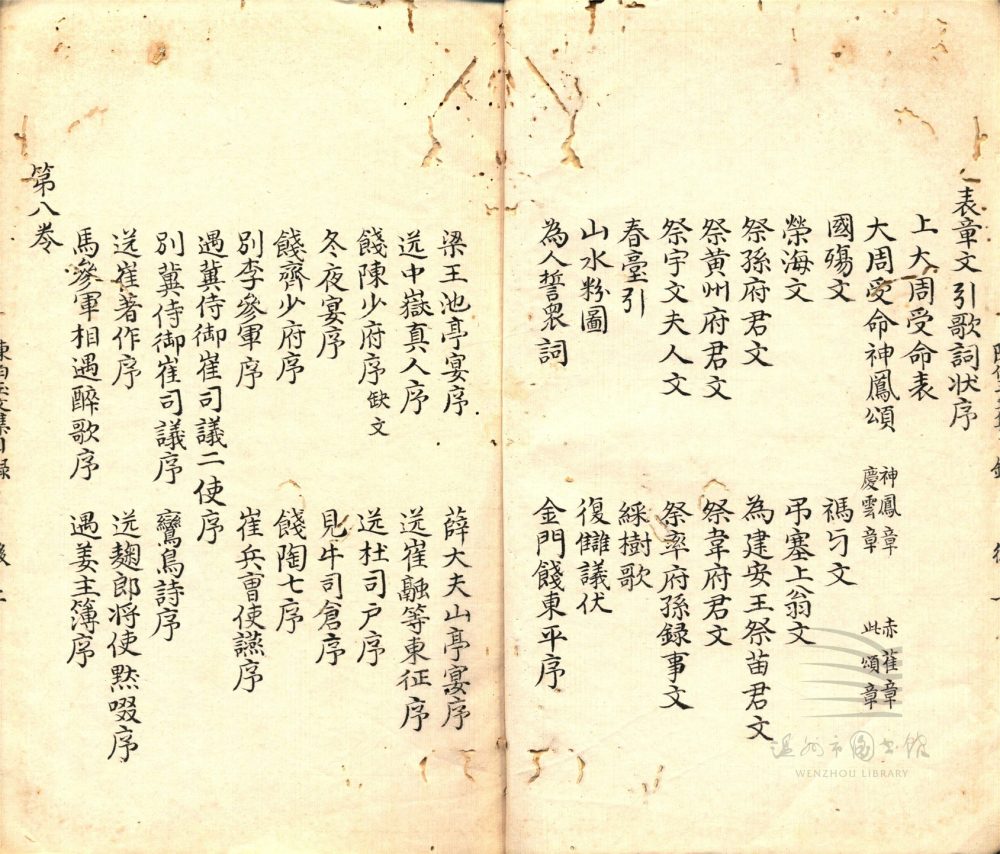 表章文引歌詞狀序
上大周受命表
大周受命神鳳頌 神鳳章 赤雀章
慶雲章 此頌章
國殤文 禡牙文
禜海文 弔塞上翁文
祭孫府君文 為建安王祭苗君文
祭黃州府君文 祭韋府君文
祭宇文夫人文 祭率府孫録事文
春臺引 綵樹歌
山水粉圖 復讎議伏
為人誓衆詞 金門餞東平序
梁王池亭宴序 薛大夫山亭宴序
送中嶽真人序 送崔融等東征序
餞陳少府序 缺文 送杜司户序
冬夜宴序 見牛司倉序
餞齊少府序 餞陶七序
別李參軍序 崔兵曹使讌序
遇冀侍御崔司議二使序
別冀侍御崔司議序 鸞鳥詩序
送崔著作序 送麹郎将使默啜序
馬參軍相遇醉歌序 遇姜主簿序
第八卷
温州市圖書館
WENZHOU LIBRARY